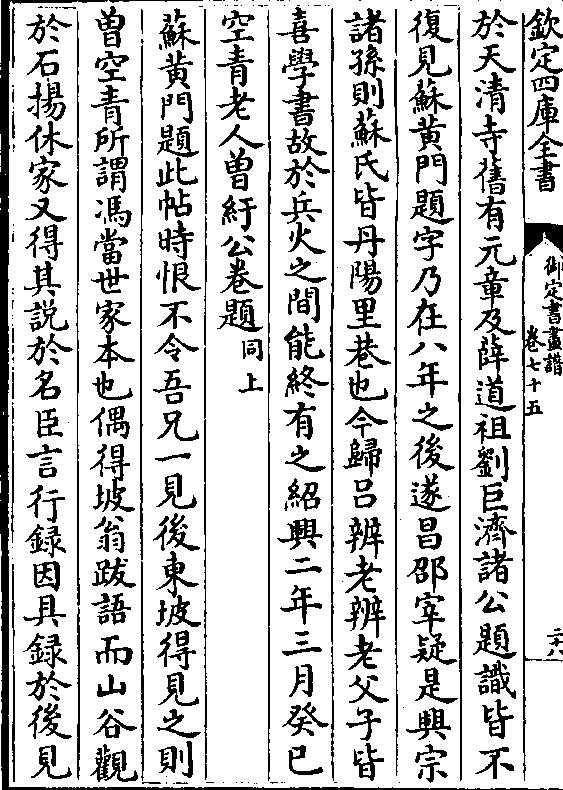 欽定四庫全書
御定書畫譜
卷七十五
二六
於天清寺舊有元章及薛道祖劉巨濟諸公題識皆不
復見蘇黃門題字乃在八年之後遂昌邵宰疑是興宗
諸孫則蘇氏皆丹陽里巷也今歸呂辨老辨老父子皆
喜學書故於兵火之間能終有之紹興二年三月癸巳
空青老人曾紆公卷題同上
蘇黃門題此帖時恨不令吾兄一見後東坡得見之則
曾空青所謂馮當世家本也偶得坡翁跋語而山谷觀
於石揚休家又得其説於名臣言行録因具録於後見